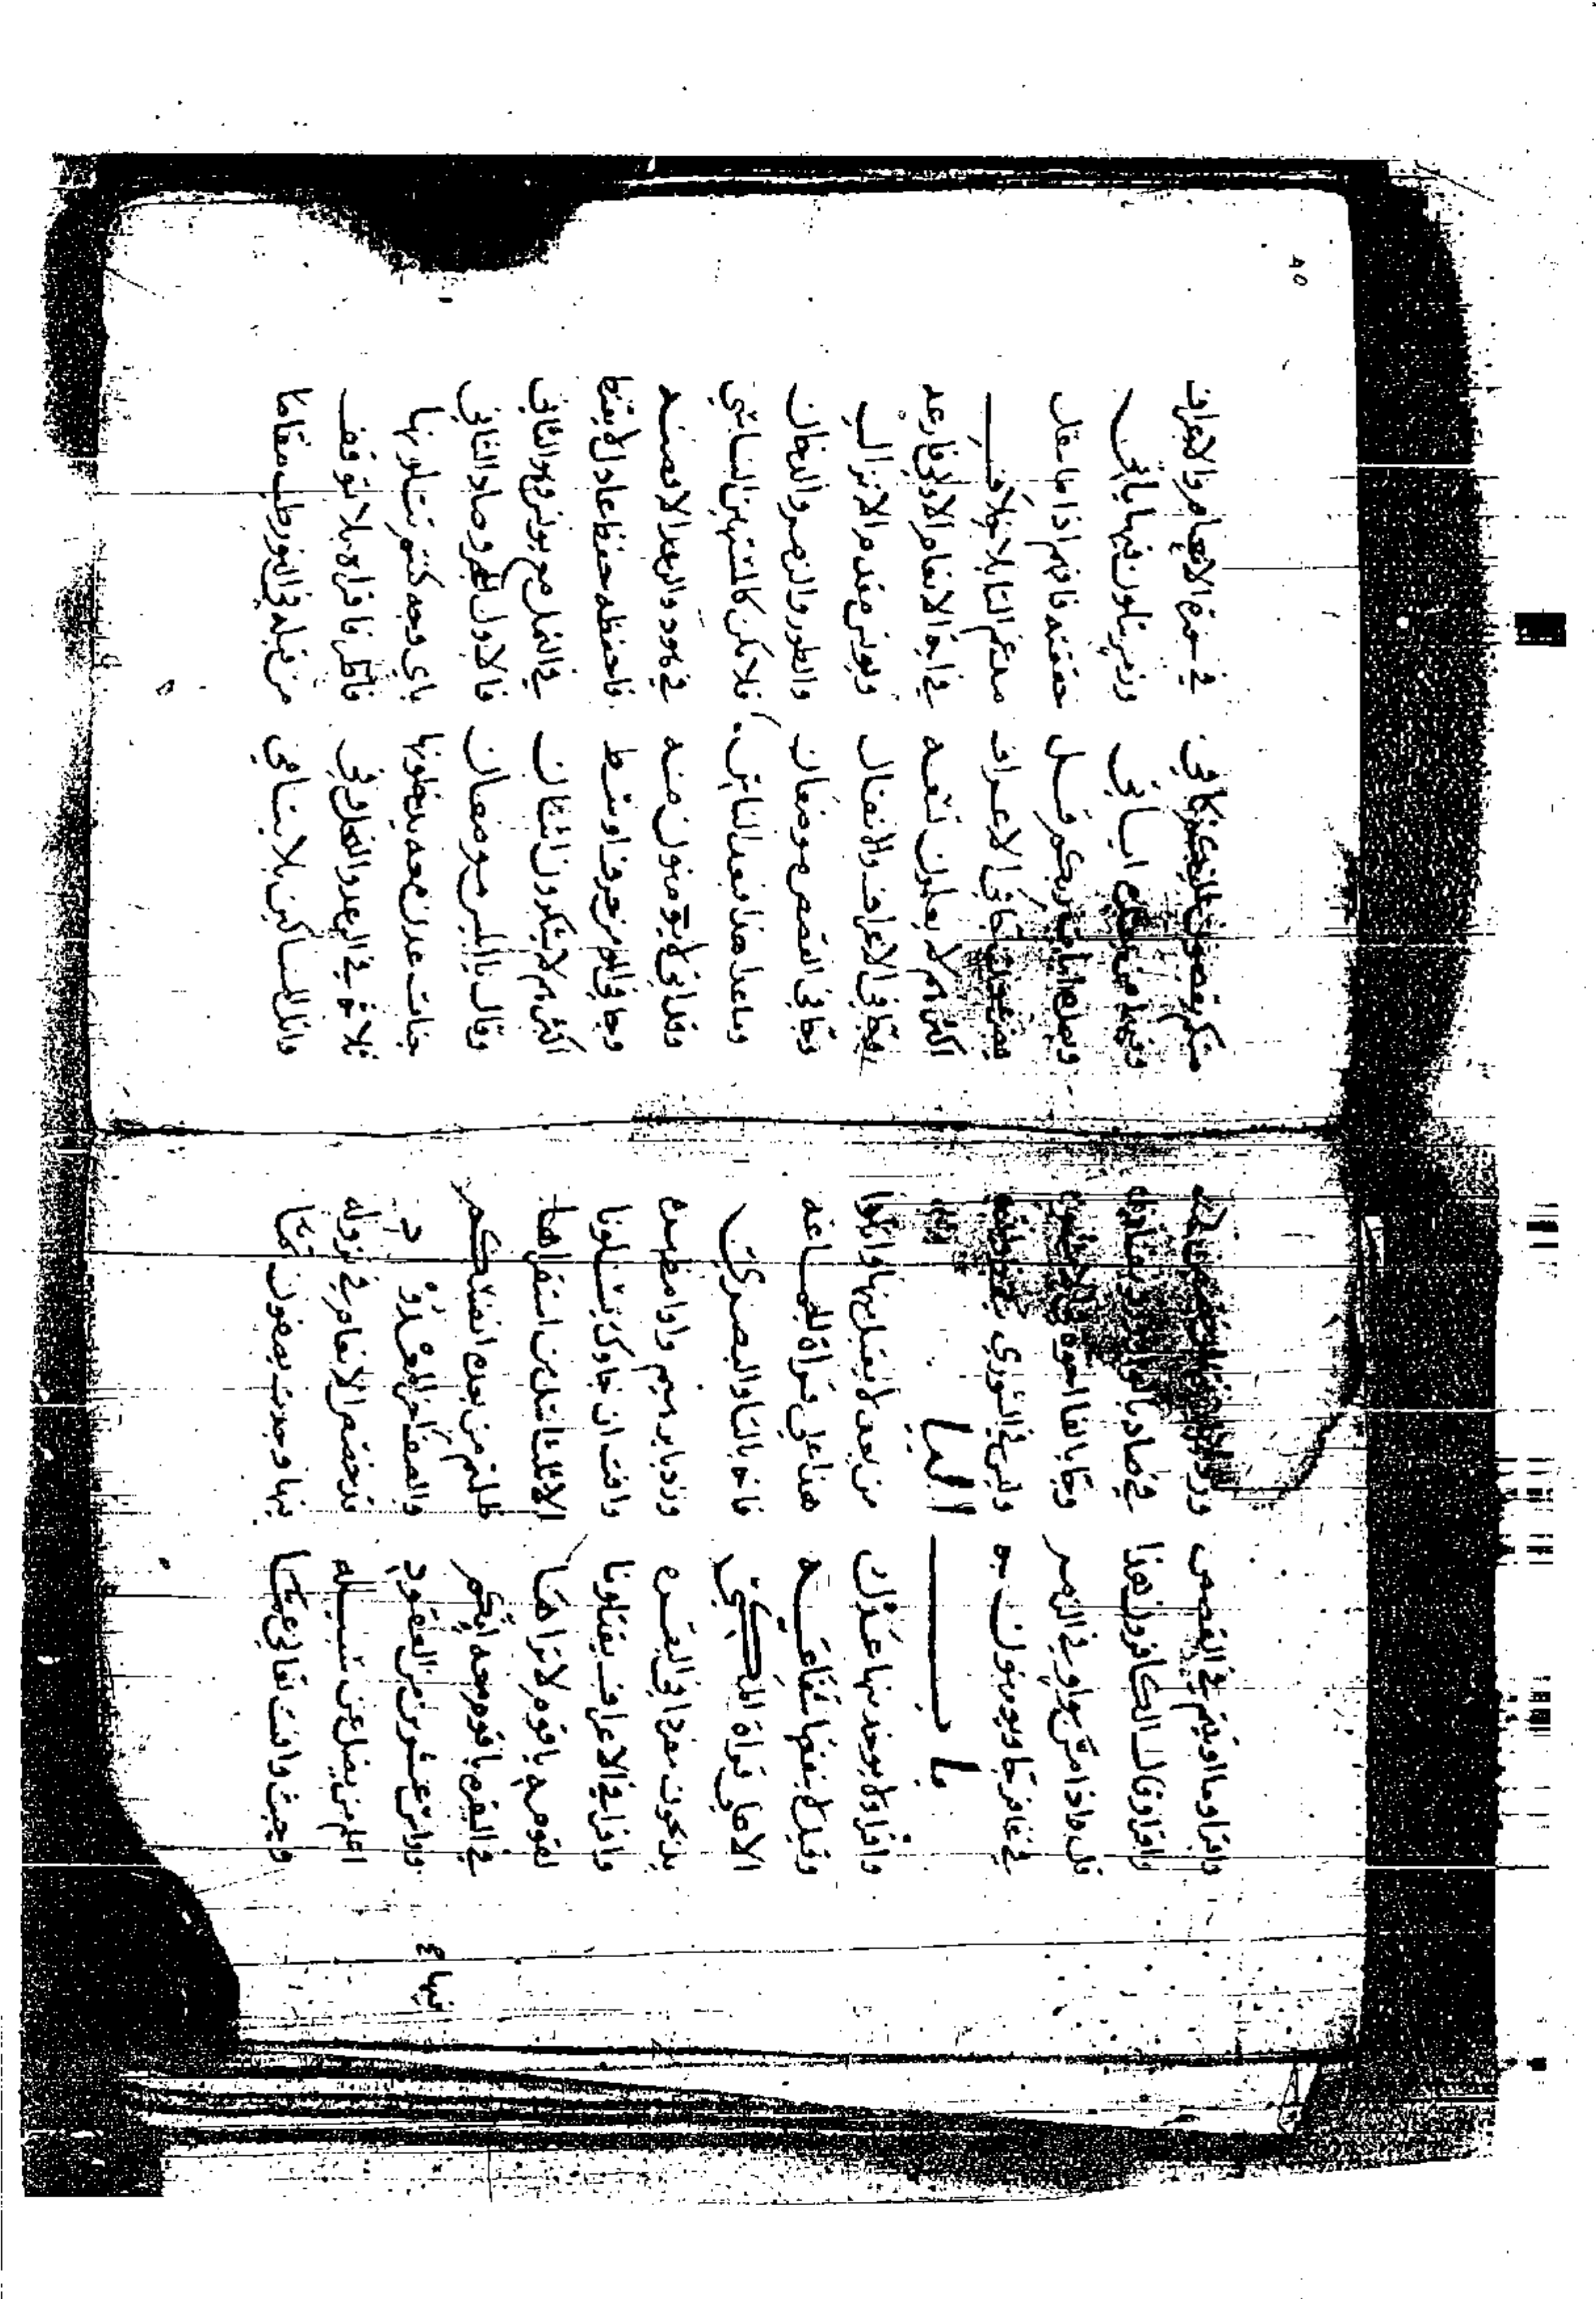 واقرا وما اوتيتم في القصص
واقرا وقال الكافرون هذا في صاد بالواو
قل واذا مس بواو في الزمر وجا بالفا
في غافر جا ويومنون به وليس في الشوري
باب اليا
واقرا ولا يوخذ منها عدل من بعد لا يقبل منها واتلوا
وقبل لا ينفعها شفاعه هنا علي قراة الجماعه
الا علي قراة المكي فانه بالتا والبصري
يذبحون مفردا في البقره وزد بابرهيم واوا مظهره
واقرا في الاعراف يقتلونا وافت ان جاوك يسئلونا
لقومه ياقوم لا تراها الا ثلثا استقراها
في البقره ياقوم معه انكم ظلمتم من بعده انفسكم
وراس عشرين من العقود والصف
اعلم من يضل عن سبيله قد خص الانعام في نزوله
وحيث وافت تعالي عما فيها وجدت يصفون ثما
فيها ع
٨٥
منكم يقصون عليكم كافي في سورة الانعام والاعراف
وفيهما من اياتي وزمر يتلون فيها ياتي
وبعده ايات ربكم فقل حققته فافهم اذا ما تنقل
يضرعون جا في الاعراف مدغم التا بلا خلاف
اكثرهم لا يعلمون تتبعه في اية الانعام الاولي فارعه
وجا في الاعراف والانفال ويونس مقدم الانزال
وجا في القصص موضعان والطور والزمر والدخان
وما عدا هذا فبعد الناس فلا تكن
وقل اتي لا يومنون منه في هود والرعد الا فصنه
وجا في المومن حرفا وسط فاحفظه حفظ عادل لا
اكثرهم لا يشكرون اثنان في النمل مع يونس وهو الثاني
وقال يا ابليس موضعان فالاول الحجر وصاد الثاني
جنات عدن معه يدخلونها باي وجه كنتم تتلونها
ثلاثة في الرعد والنحل وفي فاطر فاقراه بلا توقف
المساكين بلا يتامي من قبله في النور طب مقاما